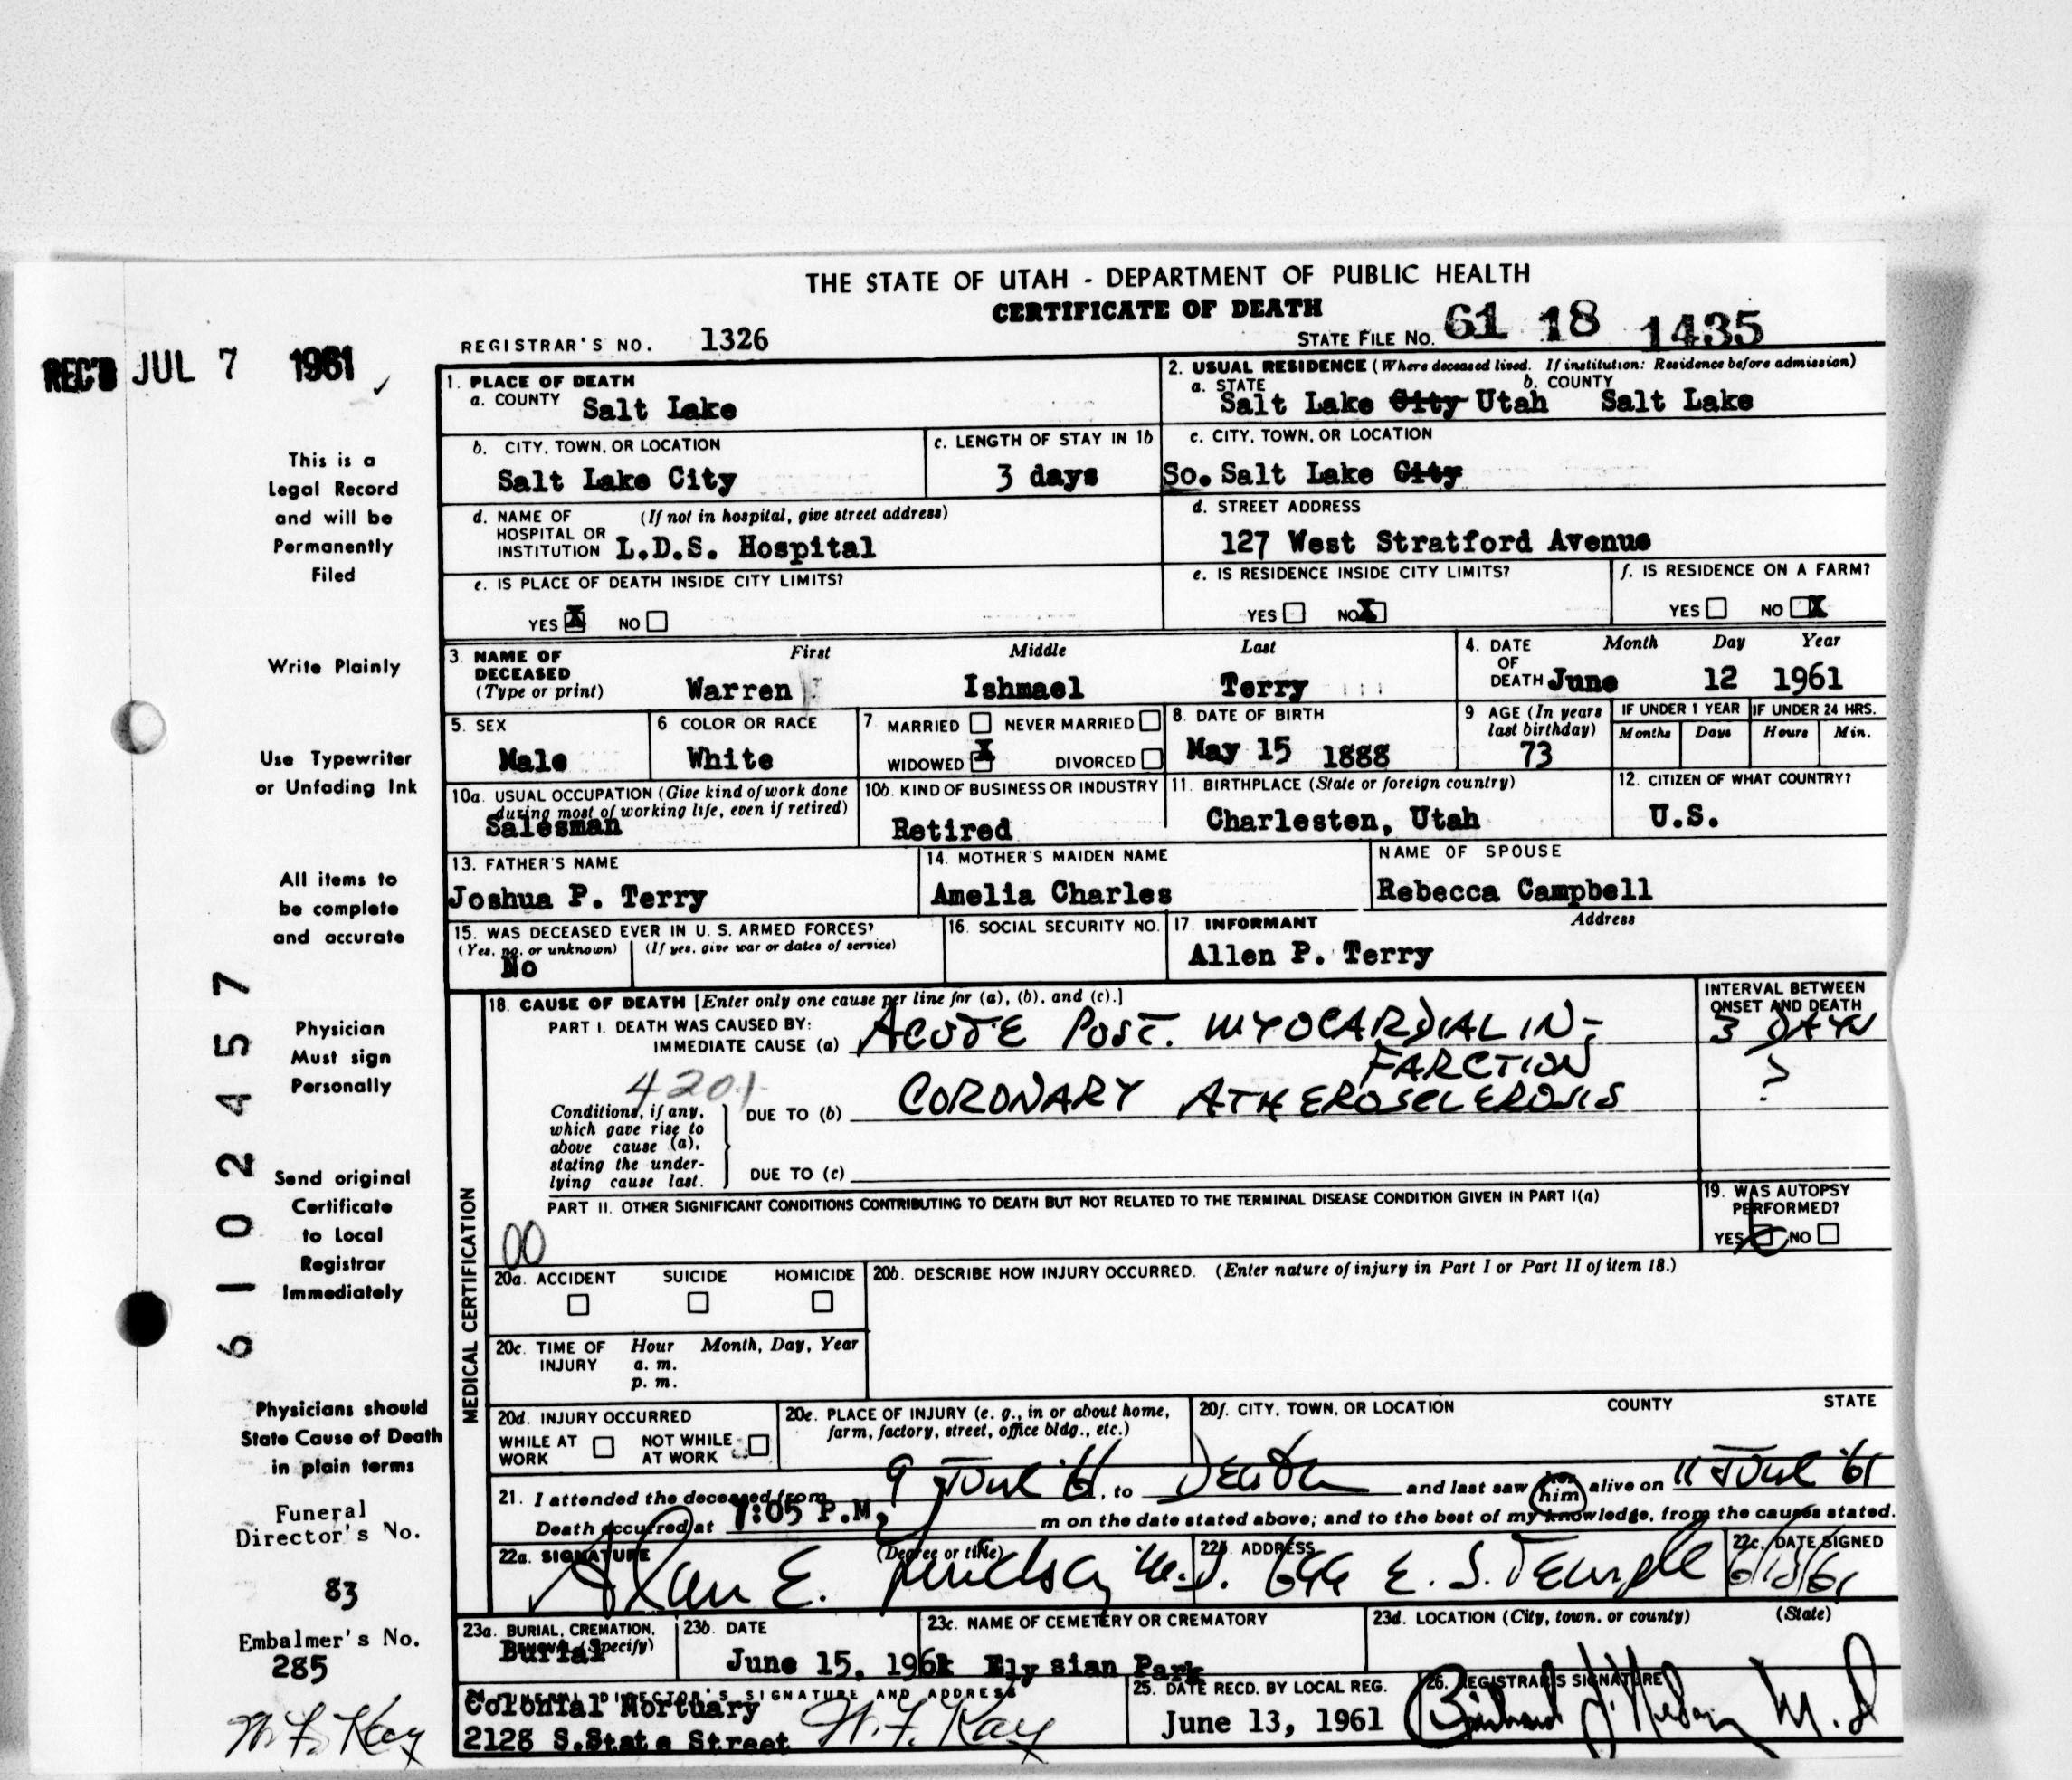 THE STATE OF UTAH - DEPARTMENT OF PUBLIC HEALTH
CERTIFICATE OF DEATH
REGISTRAR'S NO. 1326
STATE FILE NO. 61 18 1435
REC'D JUL 7 1961
This is a
Legal Record
and will be
Permanently
Filed
Write Plainly
Use Typewriter
or Unfading Ink
All items to
be complete
and accurate
Physician
Must sign
Personally
Send original
Certificate
to Local
Registrar
Immediately
Physicians should
State Cause of Death
in plain terms
Funeral
Director's No.
83
Embalmer's No.
285
W. F. Kay
6102457
1. PLACE OF DEATH
a. COUNTY Salt Lake
2. USUAL RESIDENCE (Where deceased lived. If institution: Residence before admission)
a. STATE b. COUNTY
Salt Lake City Utah Salt Lake
b. CITY, TOWN, OR LOCATION
Salt Lake City
c. LENGTH OF STAY IN 1b
3 days
c. CITY, TOWN, OR LOCATION
So. Salt Lake City
d. NAME OF (If not in hospital, give street address)
HOSPITAL OR
INSTITUTION L.D.S. Hospital
d. STREET ADDRESS
127 West Stratford Avenue
e. IS PLACE OF DEATH INSIDE CITY LIMITS?
YES X NO
e. IS RESIDENCE INSIDE CITY LIMITS?
YES NO X
f. IS RESIDENCE ON A FARM?
YES NO X
3. NAME OF First Middle Last
DECEASED
(Type or print) Warren Ishmael Terry
4. DATE Month Day Year
OF
DEATH June 12 1961
5. SEX
Male
6. COLOR OR RACE
White
7. MARRIED NEVER MARRIED
WIDOWED X DIVORCED
8. DATE OF BIRTH
May 15 1888
9 AGE (In years
last birthday)
73
IF UNDER 1 YEAR IF UNDER 24 HRS.
Months Days Hours Min.
10a. USUAL OCCUPATION (Give kind of work done
during most of working life, even if retired)
Salesman
10b. KIND OF BUSINESS OR INDUSTRY
Retired
11. BIRTHPLACE (State or foreign country)
Charleston, Utah
12. CITIZEN OF WHAT COUNTRY?
U.S.
13. FATHER'S NAME
Joshua P. Terry
14. MOTHER'S MAIDEN NAME
Amelia Charles
NAME OF SPOUSE
Rebecca Campbell
15. WAS DECEASED EVER IN U. S. ARMED FORCES?
(Yes, no, or unknown) (If yes, give war or dates of service)
No
16. SOCIAL SECURITY NO.
17. INFORMANT Address
Allen P. Terry
MEDICAL CERTIFICATION
18. CAUSE OF DEATH [Enter only one cause per line for (a), (b), and (c).]
INTERVAL BETWEEN
ONSET AND DEATH
PART I. DEATH WAS CAUSED BY:
IMMEDIATE CAUSE (a) ACUTE POST. MYOCARDIAL IN-
FARCTION
3 DAYS
4201
Conditions, if any,
which gave rise to
above cause (a),
stating the under-
lying cause last.
DUE TO (b) CORONARY ATHEROSCLEROSIS
?
DUE TO (c)
PART II. OTHER SIGNIFICANT CONDITIONS CONTRIBUTING TO DEATH BUT NOT RELATED TO THE TERMINAL DISEASE CONDITION GIVEN IN PART I(a)
00
19. WAS AUTOPSY
PERFORMED?
YES NO
20a. ACCIDENT SUICIDE HOMICIDE
20b. DESCRIBE HOW INJURY OCCURRED. (Enter nature of injury in Part I or Part II of item 18.)
20c. TIME OF Hour Month, Day, Year
INJURY a. m.
p. m.
20d. INJURY OCCURRED
WHILE AT NOT WHILE
WORK AT WORK
20e. PLACE OF INJURY (e. g., in or about home,
farm, factory, street, office bldg., etc.)
20f. CITY, TOWN, OR LOCATION COUNTY STATE
21. I attended the deceased from 9 June '61, to Death and last saw her him alive on 11 June '61
Death occurred at 7:05 P.M. m on the date stated above; and to the best of my knowledge, from the causes stated.
22a. SIGNATURE (Degree or title)
Alan E. Lindsay M.D.
22b. ADDRESS
E. S. Temple
22c. DATE SIGNED
6/13/61
23a. BURIAL, CREMATION,
REMOVAL (Specify)
Burial
23b. DATE
June 15, 1961
23c. NAME OF CEMETERY OR CREMATORY
Elysian Park
23d. LOCATION (City, town, or county) (State)
24. FUNERAL DIRECTOR'S SIGNATURE AND ADDRESS
Colonial Mortuary
2128 S.State Street W. F. Kay
25. DATE RECD. BY LOCAL REG.
June 13, 1961
26. REGISTRAR'S SIGNATURE
M.D